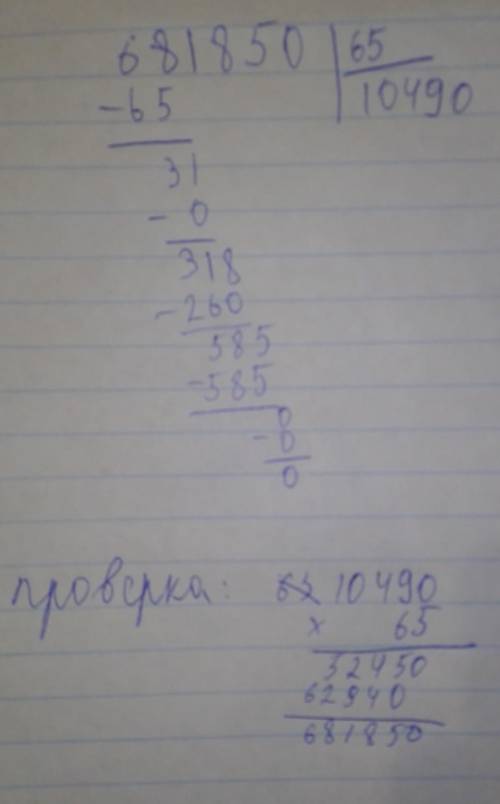 681850 | 65
-65 10490
31
- 0
318
-260
585
-585
0
-0
0
проверка: 10490
x 65
52450
62940
681850